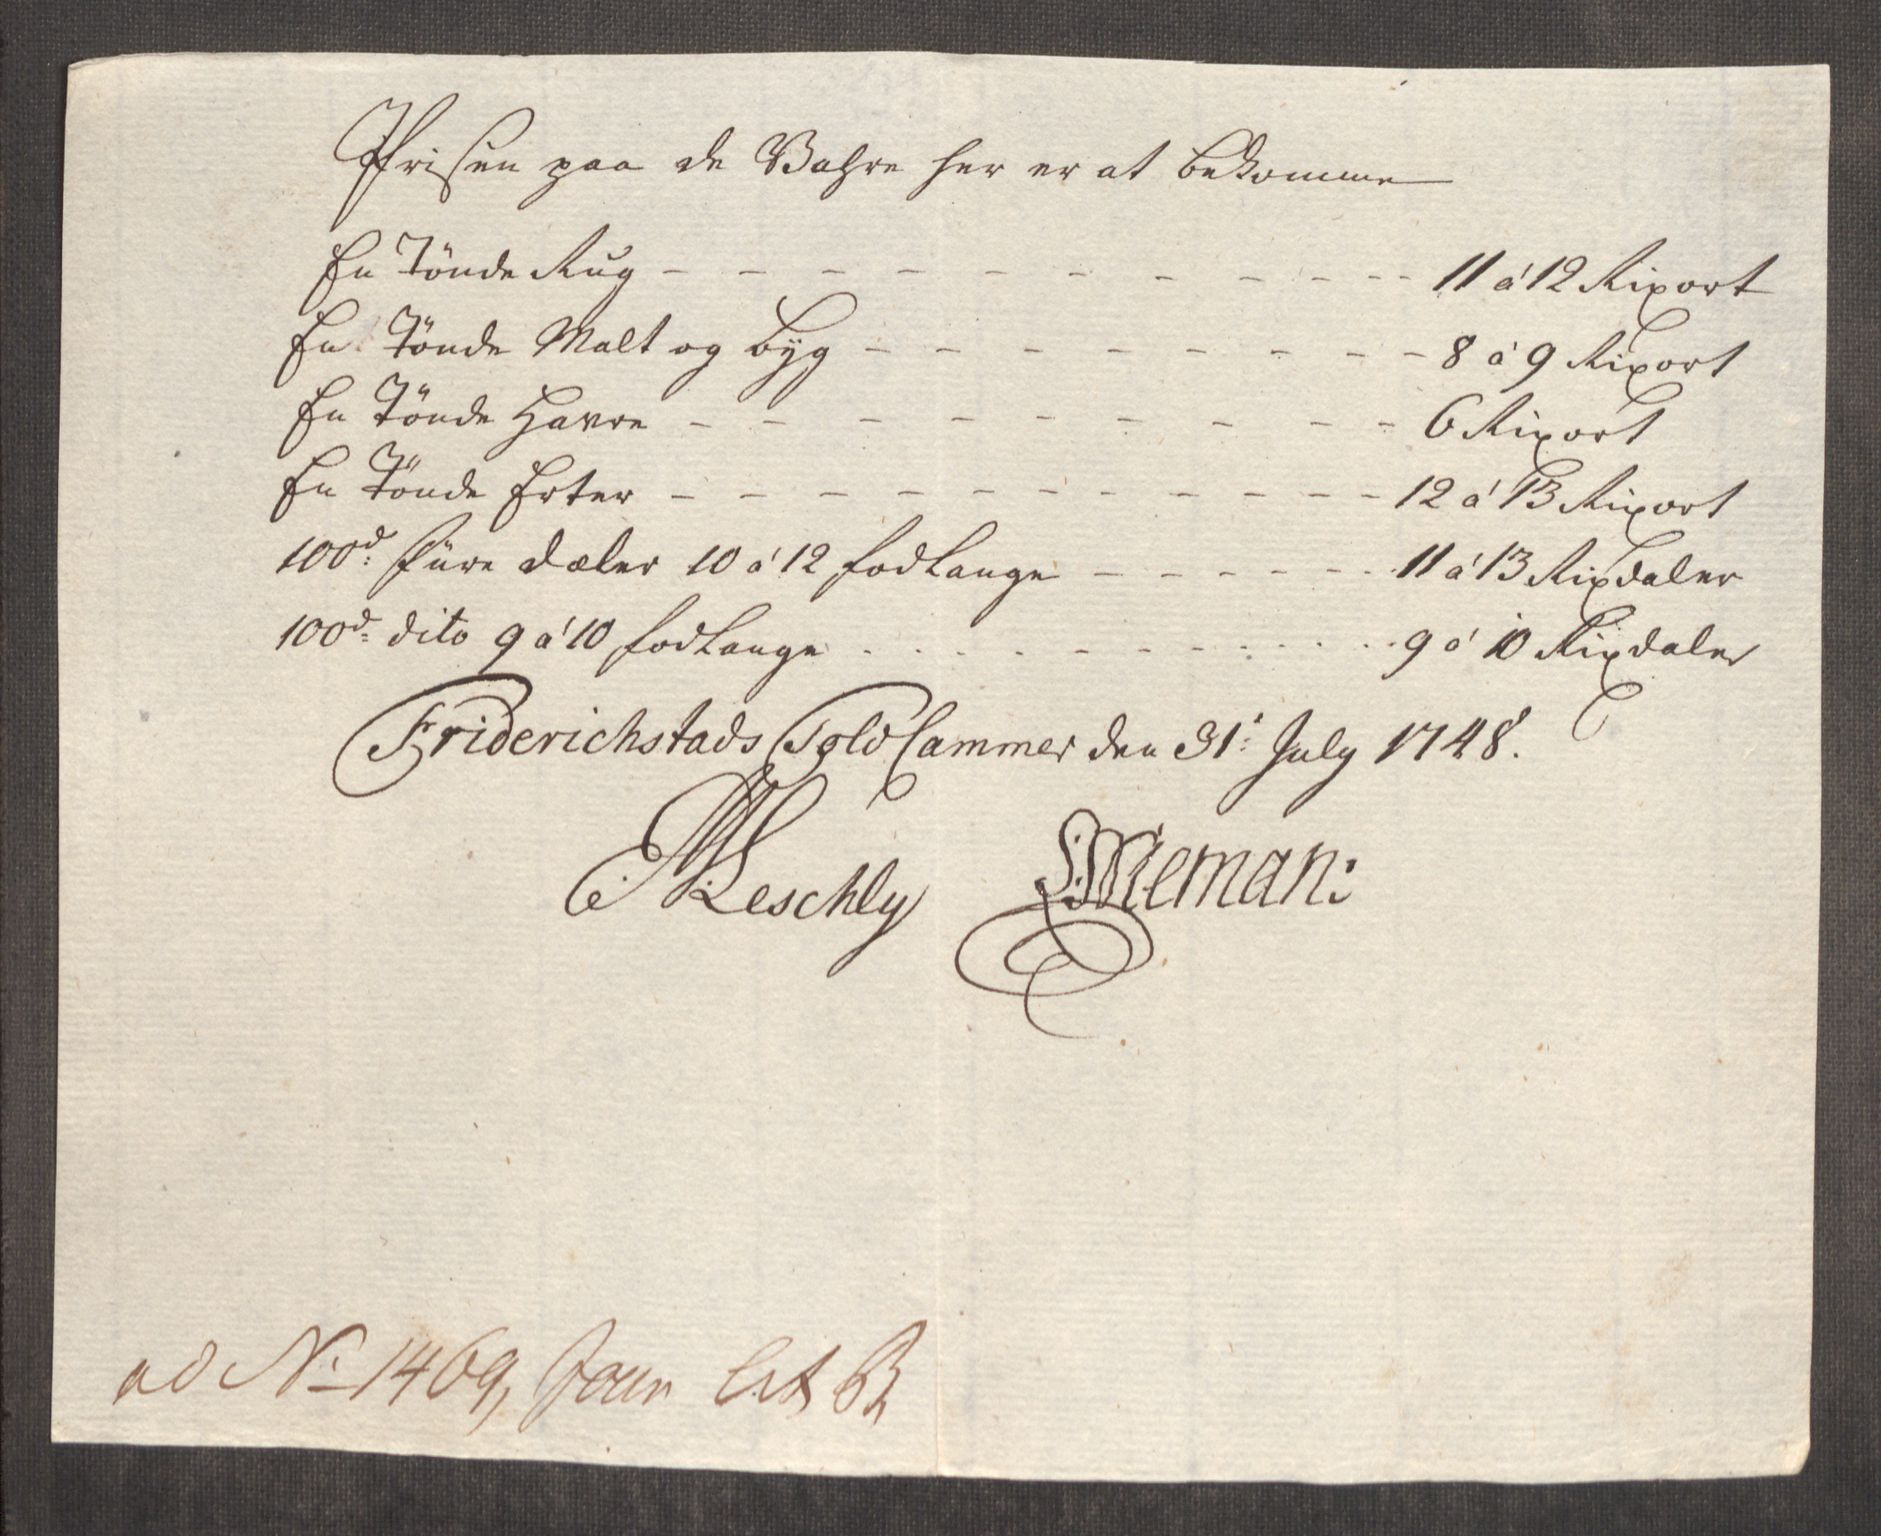 Prisen paa de Wahre her er at bekomme
En Tönde Rug - - - - - - - - - - - 11 á 12 Rixort
En Tönde Malt og byg - - - - - - - - - 8 á 9 Rixort
En Tönde Havre - - - - - - - - - 6 Rixort
En Tönde Erter - - - - - - - - - - - 12 á 13 Rixort
100d: füre dæler 10 á 12 fod lange - - - - - - 11 á 13 Rixdaler
100d= dito 9 á 10 fod lange . . . - - - - - . . . 9 á 10 Rixdaler
Friderichstads Told Cammer den 31: July 1748.
Leschly Wieman:
ad No 1469, Jour Lit B